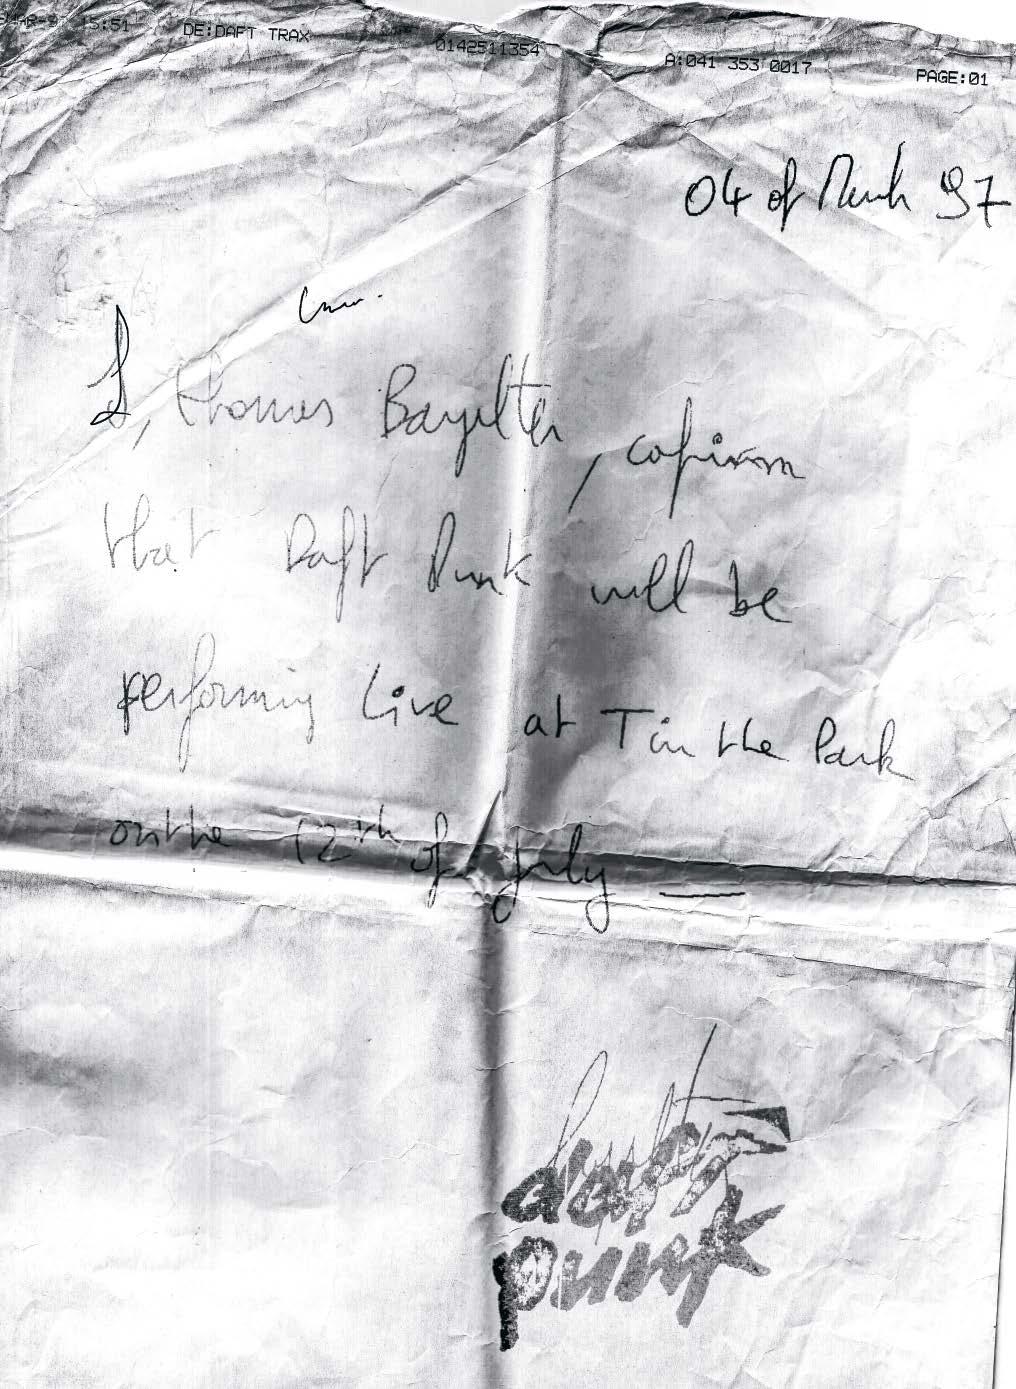 15:51 DE:DAFT TRAX 0142511354 A:041 353 0017 PAGE:01
04 of March 97
I, thomas Bangalter, cofirm
that Daft Punk will be
performing Live at T in the Park
on the 12th of July —
daft
punk